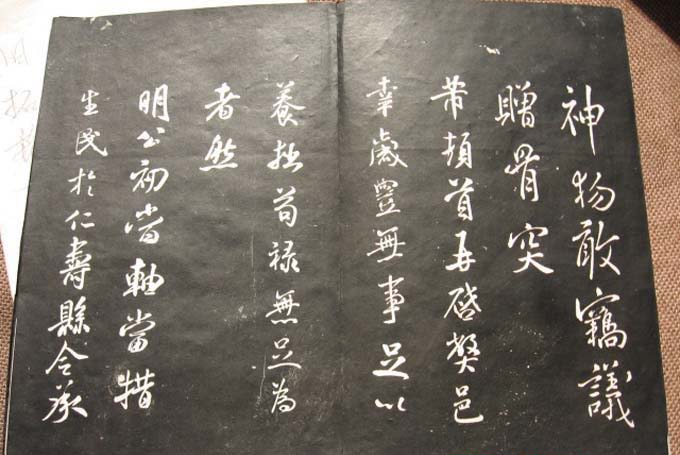 神物敢竊議
贈骨突
芾頓首再啓弊邑
幸歲豐無事足以
養拙苟祿無足為
者然
明公初當軸當措
生民於仁壽縣令承